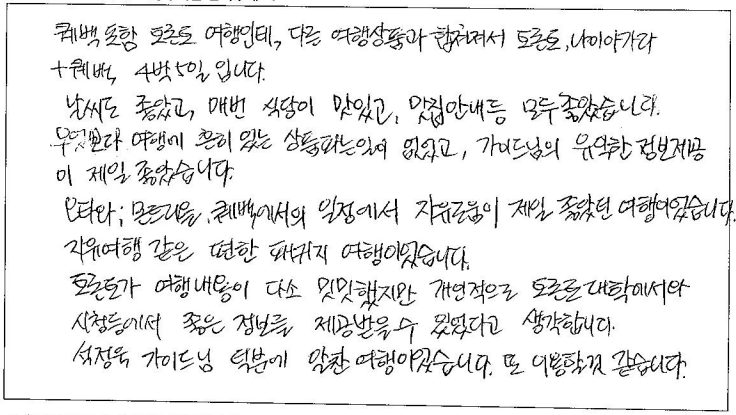 퀘백 포함 토론토 여행인데, 다른 여행상품과 합쳐져서 토론토, 나이아가라
+퀘벡, 4박5일 입니다.
날씨도 좋았고, 매번 식당이 맛있고, 맛집안내등 모두 좋았습니다.
무엇보다 여행에 흔히 있는 상품파는일이 없었고, 가이드님의 유익한 정보제공
이 제일 좋았습니다.
오타와, 몬트리올, 퀘백에서의 일정에서 자유로움이 제일 좋았던 여행이었습니다.
자유여행 같은 편한 패키지 여행이었습니다.
토론토가 여행내용이 다소 밋밋했지만 개인적으로 토론토 대학에서와
시청등에서 좋은 정보를 제공받을수 있었다고 생각합니다.
석정욱 가이드님 덕분에 알찬 여행이었습니다. 또 이용할것 같습니다.